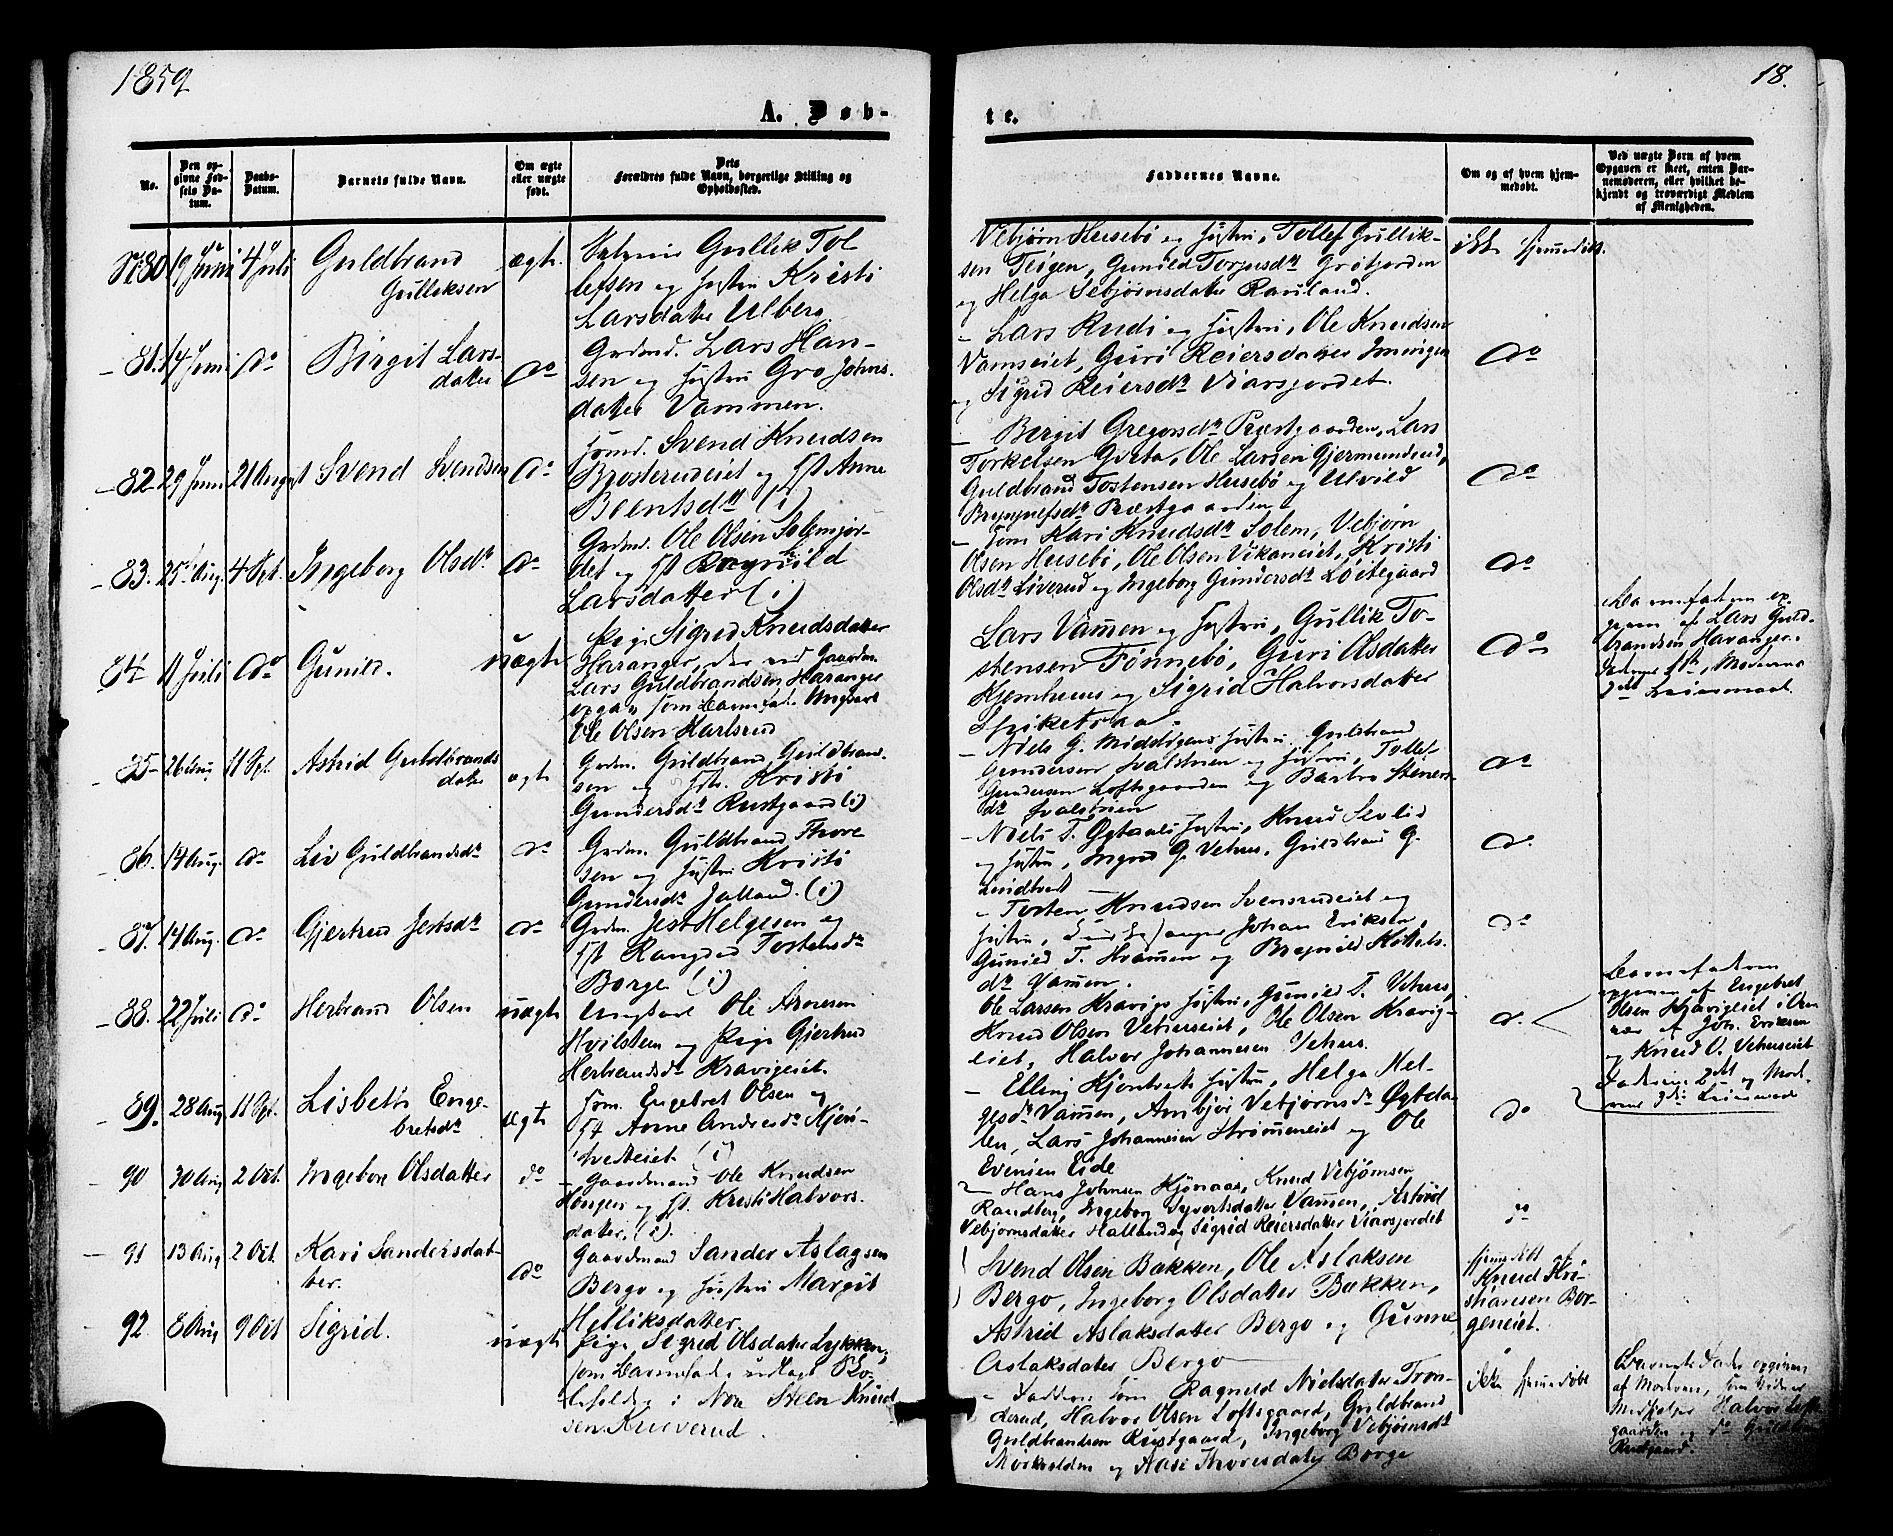 1859
18.
A. Døb-
te.
No.
Den op-
givne Fød-
sels Da-
tum.
Daabs-
Datum.
Barnets fulde Navn.
Om ægte
eller uægte
født.
Dets
Forældres fulde Navn, borgerlige Stilling og
Opholdssted.
Faddernes Navne.
Om og af hvem hjem-
medøbt.
Ved uægte Børn af hvem
Opgaven er skeet, enten Bar-
nemoderen, eller hvilket be-
kjendt og troværdigt Medlem
af Menigheden.
80 19 Juni 4 Juli Guldbrand
Gulliksen
ægte
Gullik Tol
lefsen og Hustru Kristi
Larsdatter Ulberg
Vebjørn Husebø og Hustru, Tollef Gullik-
sen Teigen, Gunild Torjusdr Grøtjorden
og Helga Sebjørnsdatter Rauland.
ikke hjemmedøbt.
81. 14 Juni do Birgit Lars-
datter
do
Grdmd. Lars Han-
sen og Hustru Gro Johns-
datter Vammen.
Lars Rudi og Hustru, Ole Knudsen
Vamseiet, Guri Reiersdatter
og Sigrid Reiersdr Viarsjordet.
do
82 29 Juni 21 August Svend Svendsen do
Huusmd. Svend Knudsen
Brosterudeiet og Hst Anne
Beentsdr (i)
Bergit Gregorsdr Præstgaarden, Lars
Torkelsen Gvæta, Ole Larsen Gjermundrud,
Guldbrand Tostensen Husebø og Ulvild
Brynjulfsdr Præstgaarden
do
83. 25 Aug. 4 Spt. Ingeborg Olsdr do
Grdmd. Ole Olsen Solemsjor-
det og Hst Ragnild
Larsdatter (i)
Kari Knudsdr Solem, Vebjørn
Olsen Husebø, Ole Olsen Vikaneiet, Kristi
Olsdr Liverud og Ingeborg Gundersdr Løitegaard
do
84 11 Juli do Gunild. uægte
Pige Sigrid Knudsdatter
Haranger, der ved Gaardm.
Lars Guldbrandsen Haranger
opgav som Barnefader Ungkarl
Ole Olsen Karlsrud
Lars Vammen og Hustru, Gullik To-
stensen Tønnebø, Guri Olsdatter
Kjemhuus og Sigrid Halvorsdatter
Spiketraa.
do
Barnefaderen op-
given af Lars Guld-
brandsen Haranger.
Faderens 1ste, Moderens
3die Leiermaal.
85 26 Aug 11 Spt. Astrid Guldbrands
datter
ægte
Grdm. Guldbrand Guldbrand-
sen og Hst. Kristi
Gundersdr Rustgaard (i)
Niels G. Middtigens Hustru, Guldbrand
Gundersen Svalstuen og Hustru, Tollef
Gundersen Loftsgaarden og Barbro Steners-
dr Svalstuen
do
86. 14 Aug. do Liv Guldbrandsdr do
Grdm. Guldbrand Thore
sen og Hustru Kristi
Gundersdr Jalland. (i)
Niels T. Øgtaals Hustru, Knud Sevlid
og Hustru, Ingrid G. Vehus, Guldbrand G.
Lindtveit
do
87. 14 Aug. do Gjertrud Jertsdr do
Grdm. Jest Helgesen og
Hst Rangdid Tostensdr
Borge (i)
Tosten Knudsen Svensrudeiet og
Hustru, Johan Eriksen,
Gunild T. Kvammen og Ragnild Kittels-
dr Vammen.
do
88. 22 Juli do Herbrand Olsen uægte
Ungkarl Ole Arnesen
Hvilsteen og Pige Gjertrud
Herbrandsdr Kravigeiet.
Ole Larsen Kravigs Hustru, Gunild T. Vehus,
Knud Olsen Vehuseiet, Ole Olsen Kravig-
eiet, Halvor Johannesen Vehus.
do
Barnefaderen
opgiven af Engebret
Olsen Kravigeiet
Joh. Eriksen
og Knud O. Vehuseiet
Faderens 2det og Mod-
erens 3die Leiermaal
89. 28 Aug 11 Spt. Lisbeth Enge-
bretsdr
ægte
Huusm. Engebret Olsen og
Hst Anne Andersdr Kjøn-
tvedteiet (i)
Elling Kjøntvets Hustru, Helga Hel-
gesdr Vammen, Ambjør Vebjørnsdr Øgtda-
len, Lars Johannesen Strømmeneiet og Ole
Evensen Eide
do
90 30 Aug 2 Oct. Ingeborg Olsdatter do
Gaardmand Ole Knudsen
Haugen og Hst. Kristi Halvors-
datter, (i).
Hans Johnsen Kjønaas, Knud Vebjørnsen
Randberg, Ingeborg Syvertsdatter Vammen, Astrid
Vebjørnsdatter Halland og Sigrid Reiersdatter Viarsjordet
do
91 13 Aug 2 Oct. Kari Sandersdat-
ter.
do
Gaardmand Sander Aslagsen
Bergo og Hustru Margit
Helliksdatter.
Svend Olsen Bakken, Ole Aslaksen
Bergo, Ingeborg Olsdatter Bakken,
Astrid Aslaksdatter Bergo og Gunne
Aslaksdater Bergo
hjemmedøbt af
Knud Kri-
stiansen Bor-
geneiet.
92. 8 Aug 9 Oct Sigrid. uægte
Pige Sigrid Olsdatter Lykken,
som Barnefader udlagt
i Nore Steen Knud
sen Krieverud.
Faddere som Ragnild Nielsdatter Tron-
derud, Halvor Olsen Loftsgaard, Guldbrand
Guldbrandsen Rustgaard, Ingeborg Vebjørnsdr
Mørkvolden og Aase Thoresdater Borge
ikke hjemmedøbt
Barnets Fader opgiven
af Moderen, som Vidner
Medhjelper Halvor Lofts-
gaarden og do Guldbr.
Rustgaard.